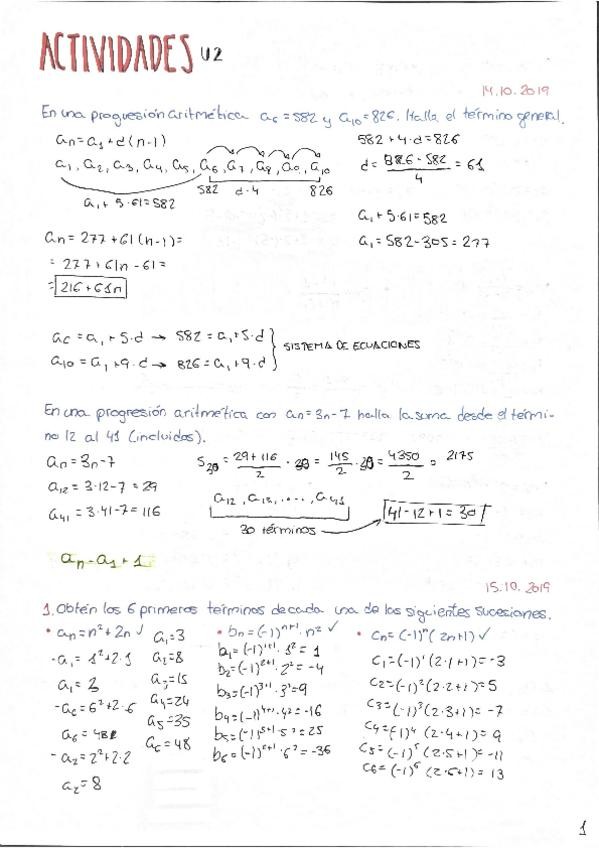 ACTIVIDADES U2
14.10.2019
En una progresión aritmética a₆ = 582 y a₁₀ = 826. Halla el término general.
aₙ = a₁ + d(n-1)
a₁, a₂, a₃, a₄, a₅, a₆, a₇, a₈, a₉, a₁₀
582 d·4 826
a₁ + 5·61 = 582
582 + 4·d = 826
d = (826 - 582)/4 = 61
a₁ + 5·61 = 582
a₁ = 582 - 305 = 277
aₙ = 277 + 61(n-1) =
= 277 + 61n - 61 =
= 216 + 61n
a₆ = a₁ + 5·d → 582 = a₁ + 5·d
a₁₀ = a₁ + 9·d → 826 = a₁ + 9·d
SISTEMA DE ECUACIONES
En una progresión aritmética con aₙ = 3n - 7 halla la suma desde el térmi-
no 12 al 41 (incluidos).
aₙ = 3n - 7
a₁₂ = 3·12 - 7 = 29
a₄₁ = 3·41 - 7 = 116
S₃₀ = (29 + 116)/2 · 30 = 145/2 · 30 = 4350/2 = 2175
a₁₂, a₁₃, ...., a₄₁
30 términos → 41 - 12 + 1 = 30
aₙ - a₁ + 1
15.10.2019
1. Obtén los 6 primeros términos de cada una de las siguientes sucesiones.
• aₙ = n² + 2n ✓
- a₁ = 1² + 2·1
a₁ = 3
- a₆ = 6² + 2·6
a₆ = 48
- a₂ = 2² + 2·2
a₂ = 8
a₁ = 3
a₂ = 8
a₃ = 15
a₄ = 24
a₅ = 35
a₆ = 48
• bₙ = (-1)ⁿ⁺¹ · n² ✓
b₁ = (-1)¹⁺¹ · 1² = 1
b₂ = (-1)²⁺¹ · 2² = -4
b₃ = (-1)³⁺¹ · 3² = 9
b₄ = (-1)⁴⁺¹ · 4² = -16
b₅ = (-1)⁵⁺¹ · 5² = 25
b₆ = (-1)⁶⁺¹ · 6² = -36
• cₙ = (-1)ⁿ (2n+1) ✓
c₁ = (-1)¹ (2·1+1) = -3
c₂ = (-1)² (2·2+1) = 5
c₃ = (-1)³ (2·3+1) = -7
c₄ = (-1)⁴ (2·4+1) = 9
c₅ = (-1)⁵ (2·5+1) = -11
c₆ = (-1)⁶ (2·6+1) = 13
1